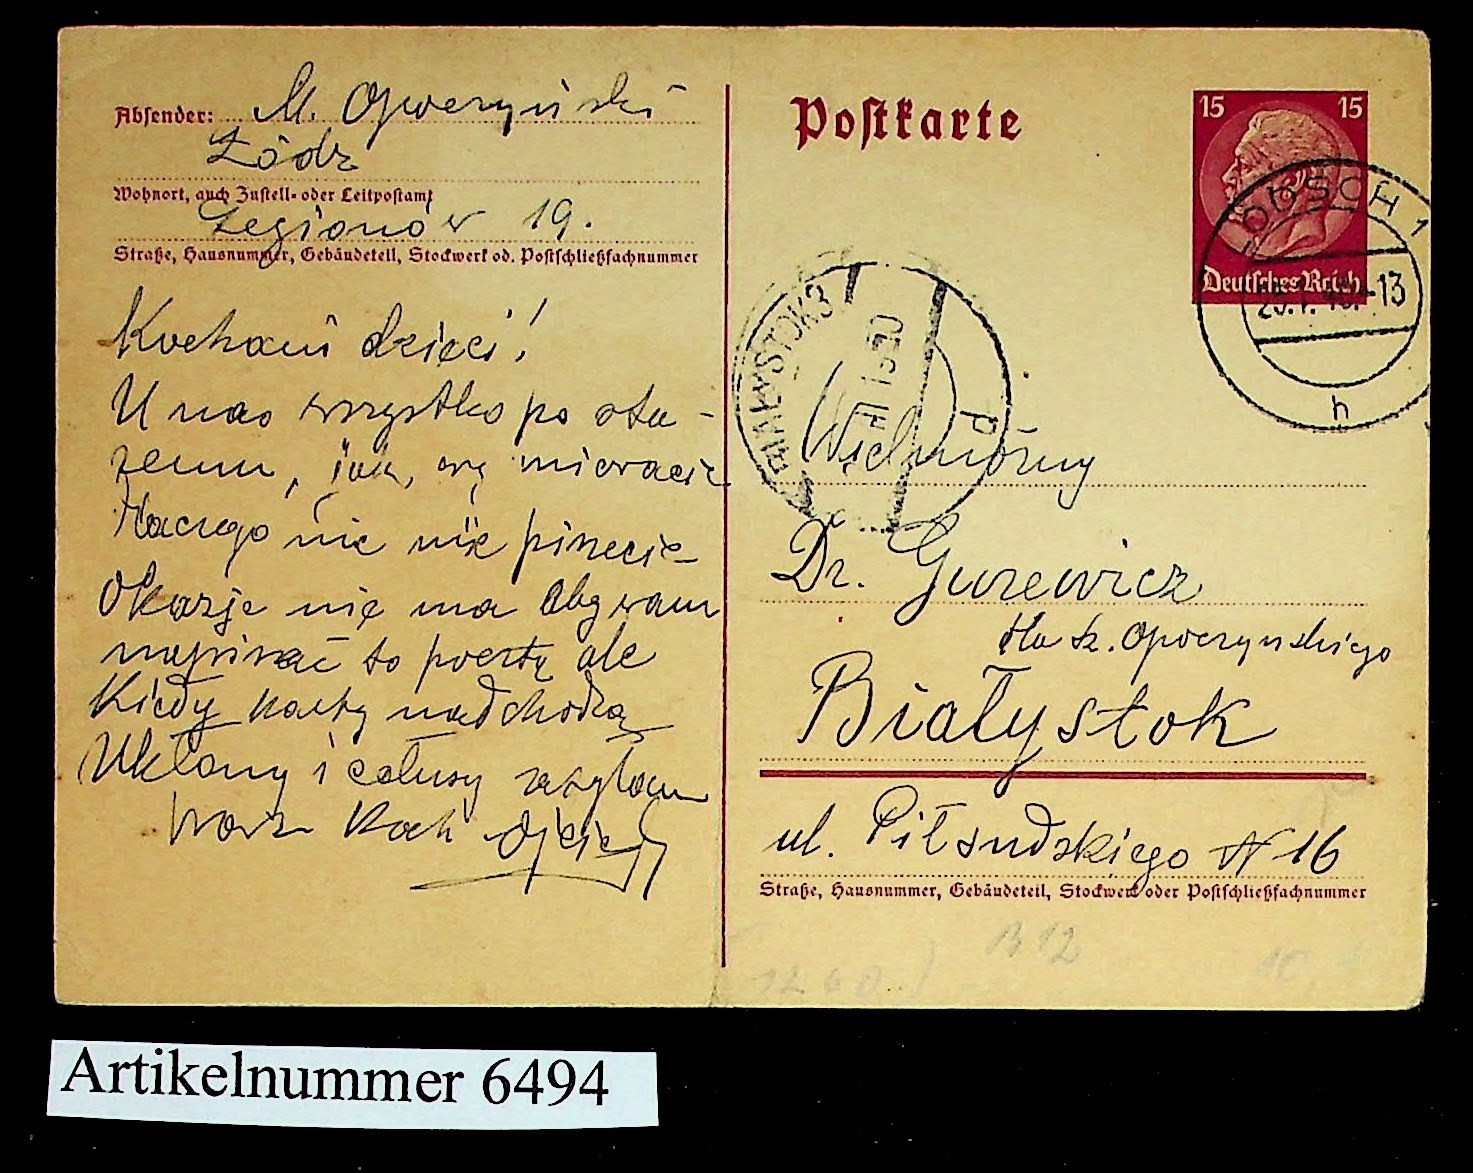 Absender: M. Opoczyński
Łódz
Wohnort, auch Zustell- oder Leitpostamt
Legionów 19.
Straße, Hausnummer, Gebäudeteil, Stockwerk od. Postschließfachnummer
Kochani dzieci!
U nas wszystko po sta-
remu,
dlaczego nic nie piszecie
Okazje nie ma aby wam
napisać to pocztą ale
Kiedy karty nadchodzą
Ukłony i całusy zasyłam
Wasz Koch Ojciec
Postkarte
15 15
Deutsches Reich
13
h
BIAŁYSTOK 3
d
Wielmożny
Dr. Gurewicz
dla H. Opoczyńskiego
Białystok
ul. Piłsudskiego N 16
Straße, Hausnummer, Gebäudeteil, Stockwerk oder Postschließfachnummer
B 12
1260
Artikelnummer 6494